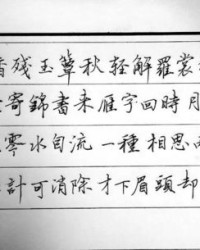 香残玉簟秋轻解羅裳
寄錦書来雁字回時月
零水自流一種相思両
計可消除才下眉頭却